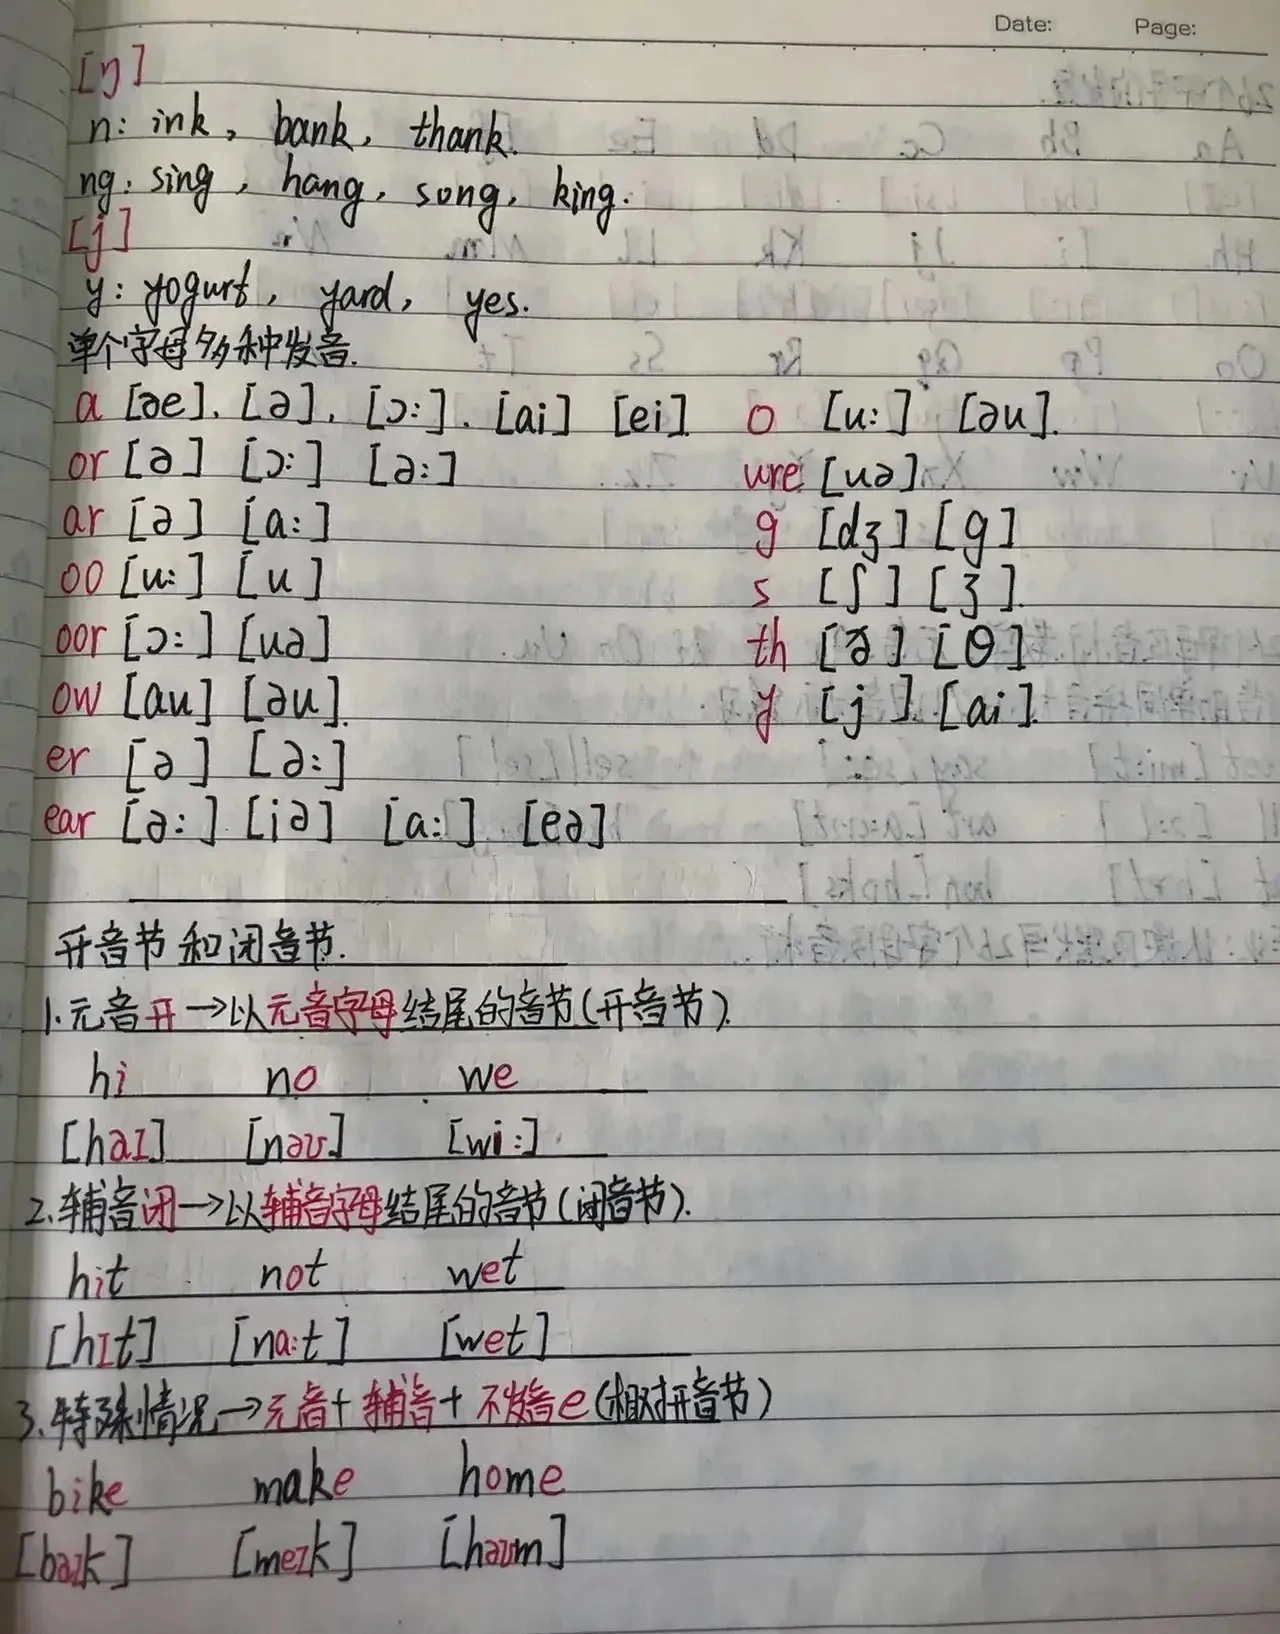 Date: Page:
[ŋ]
n: ink, bank, thank.
ng: sing, hang, song, king.
[j]
y: yogurt, yard, yes.
单个字母多种发音.
a [æ]. [ə]. [ɔ:]. [ai] [ei] o [u:] [əu].
or [ə] [ɔ:] [ə:] ure [uə]
ar [ə] [a:] g [dʒ] [g]
oo [u:] [u] s [ʃ] [ʒ].
oor [ɔ:] [uə] th [ð] [θ]
ow [au] [əu]. y [j]. [ai].
er [ə] [ə:]
ear [ə:] [iə] [a:] [eə]
开音节和闭音节.
1.元音开→以元音字母结尾的音节(开音节).
hi no we
[haɪ] [nəʊ] [wi:].
2.辅音闭→以辅音字母结尾的音节(闭音节).
hit not wet
[hɪt] [na:t] [wet]
3.特殊情况→元音+辅音+不发音e(相对开音节)
bike make home
[baɪk] [meɪk] [həʊm]